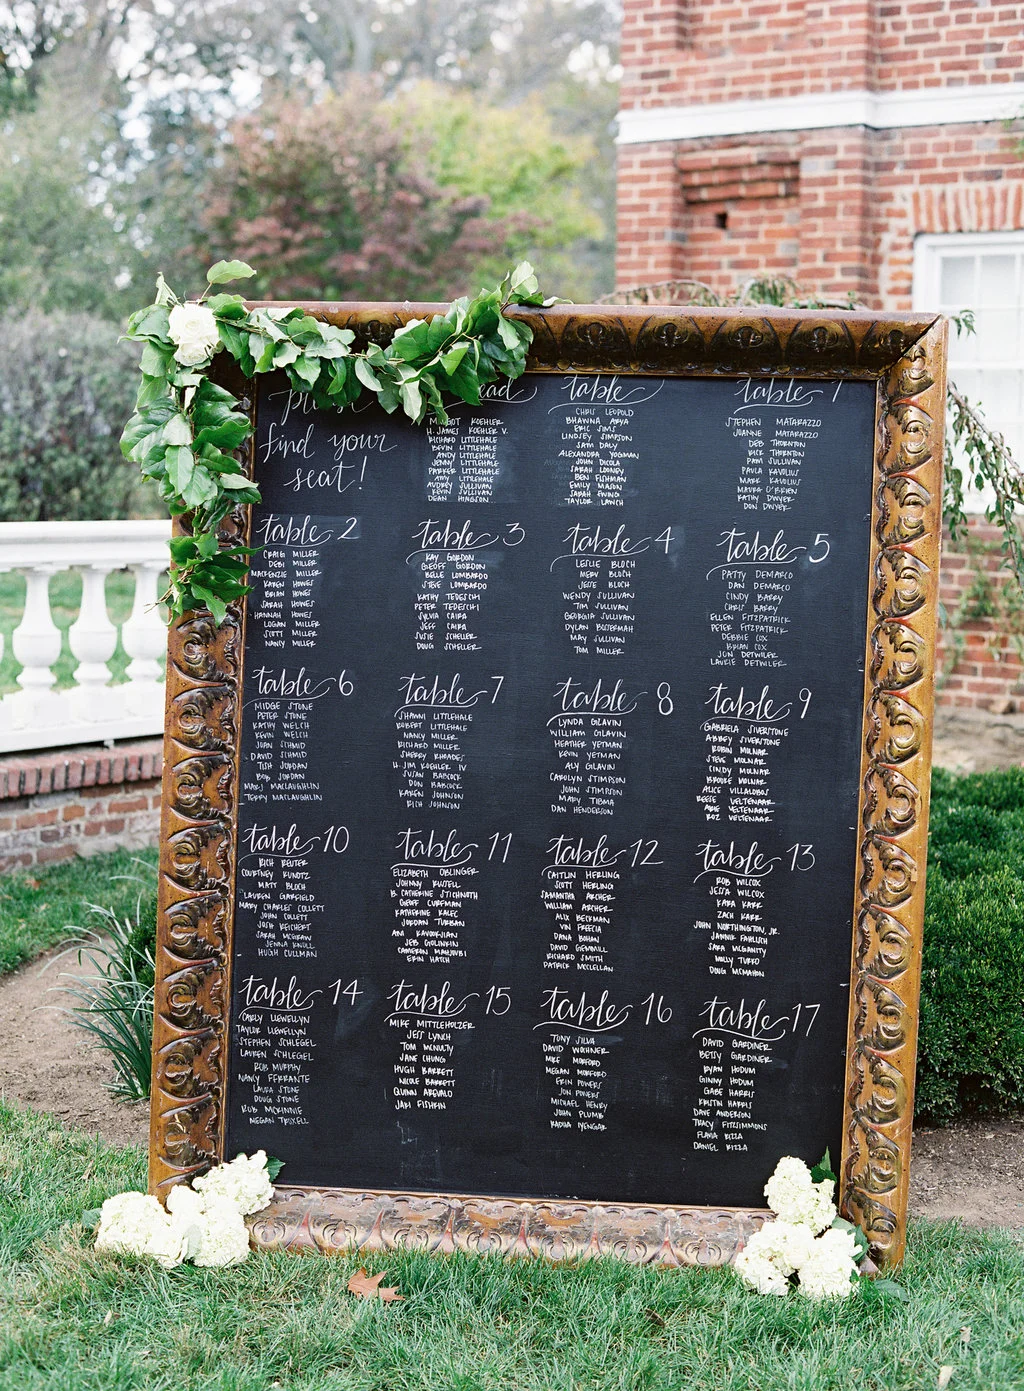 please
find your
seat!
head
MARGOT KOEHLER
H. JAMES KOEHLER V.
RICHARD LITTLEHALE
KEVIN LITTLEHALE
ANDY LITTLEHALE
JENNY LITTLEHALE
PARKER LITTLEHALE
AMY LITTLEHALE
AUDREY SULLIVAN
KEVIN SULLIVAN
DEAN HINGSON
table
CHRIS LEOPOLD
BHAWNA ARYA
ERIC SIMS
LINDSEY SIMPSON
SAM DALY
ALEXANDRA YOGMAN
JOHN DICOLA
SARAH LOONEY
BEN FISHMAN
EMILY MASON
SARAH EWING
TAYLOR LARCH
table 1
STEPHEN MATARAZZO
JOANNE MATARAZZO
DEB THORNTON
RICK THORNTON
PAM SULLIVAN
PAULA KAVOLIUS
MARK KAVOLIUS
MAURA O'BRIEN
KATHY DWYER
DON DWYER
table 2
CRAIG MILLER
DEBI MILLER
MACKENZIE MILLER
KAREN HOWES
BRIAN HOWES
SARAH HOWES
HANNAH HOWES
LOGAN MILLER
SCOTT MILLER
NANCY MILLER
table 3
KAY GORDON
GEOFF GORDON
BELLE LOMBARDO
STEVE LOMBARDO
KATHY TEDESCHI
PETER TEDESCHI
SYLVIA CAIRA
JEFF CAIRA
SUSIE SCHELLER
DOUG SCHELLER
table 4
LESLIE BLOCH
MERV BLOCH
JESSE BLOCH
WENDY SULLIVAN
TIM SULLIVAN
GEORGIA SULLIVAN
DYLAN
MAY SULLIVAN
TOM MILLER
table 5
PATTY DEMARCO
DAN DEMARCO
CINDY BARRY
CHRIS BARRY
ELLEN FITZPATRICK
PETER FITZPATRICK
DEBBIE COX
BRIAN COX
JON DETWILER
LAURIE DETWILER
table 6
MIDGE STONE
PETER STONE
KATHY WELCH
KEVIN WELCH
JOAN SCHMID
DAVID SCHMID
TISH JORDAN
BOB JORDAN
MARJ MACLAUGHLIN
TERRY MACLAUGHLIN
table 7
SHAWNI LITTLEHALE
ROBERT LITTLEHALE
NANCY MILLER
RICHARD MILLER
SHERRY RHOADS
H. JIM KOEHLER IV
SUSAN BABCOCK
DON BABCOCK
KAREN JOHNSON
RICH JOHNSON
table 8
LYNDA GLAVIN
WILLIAM GLAVIN
HEATHER YETMAN
KEVIN YETMAN
ALY GLAVIN
CAROLYN STIMPSON
JOHN STIMPSON
MARY TIBMA
DAN HENDERSON
table 9
GABRIELA SILVERSTONE
ABBEY SILVERSTONE
ROBIN MOLNAR
STEVE MOLNAR
CINDY MOLNAR
BROOKE MOLNAR
ALICE VILLALOBOS
REESE VELTENAAR
ABIE VELTENAAR
ROZ VELTENAAR
table 10
RICH REUTER
COURTNEY KUNOTZ
MATT BLOCH
LAUREN GARFIELD
MARY CHARLES COLLETT
JOHN COLLETT
JOSH REICHERT
SARAH MCGRAW
JENNA KNOLL
HUGH CULLMAN
table 11
ELIZABETH OBLINGER
JOHNNY RUSSELL
B. CATHERINE STICHNOTH
GEOFF CURFMAN
KATHERINE KALEC
JORDAN TURBAN
ANI KAVOOKJIAN
JEB GOLINKIN
CAMERON MAHJUBI
ERIN HATCH
table 12
CAITLIN HERLING
SCOTT HERLING
SAMANTHA ARCHER
WILLIAM ARCHER
ALIX BECKMAN
VIN FRECIA
DANA BOHAN
DAVID GEMMILL
RICHARD SMITH
PATRICK MCCLELLAN
table 13
ROB WILCOX
JESSA WILCOX
KARA KARR
ZACH KARR
JOHN NORTHINGTON, JR.
JANNIK FAHLISCH
SARA MCGANITY
MOLLY TURPO
DOUG MCMAHON
table 14
CARLY LLEWELLYN
TAYLOR LLEWELLYN
STEPHEN SCHLEGEL
LAUREN SCHLEGEL
ROB MURPHY
NANCY FERRANTE
LAURA STONE
DOUG STONE
ROB MCKINNIE
MEGAN TRIXELL
table 15
MIKE MITTLEHOLZER
JESS LYNCH
TOM MCNULTY
JANE CHUNG
HUGH BARRETT
NICOLE BARRETT
QUINN AREVALO
JAN FISHKIN
table 16
TONY SILVA
DAVID WOHNER
MIKE MORFORD
MEGAN MORFORD
ERIN POWERS
JON POWERS
MICHAEL HENRY
JOHN PLUMB
RADHA IYENGAR
table 17
DAVID GARDINER
BETSY GARDINER
RYAN HODUM
GINNY HODUM
GABE HARRIS
KRISTIN HARRIS
DAVE ANDERSON
TRACY FITZSIMMONS
FLAVIA RIZZA
DANIEL RIZZA